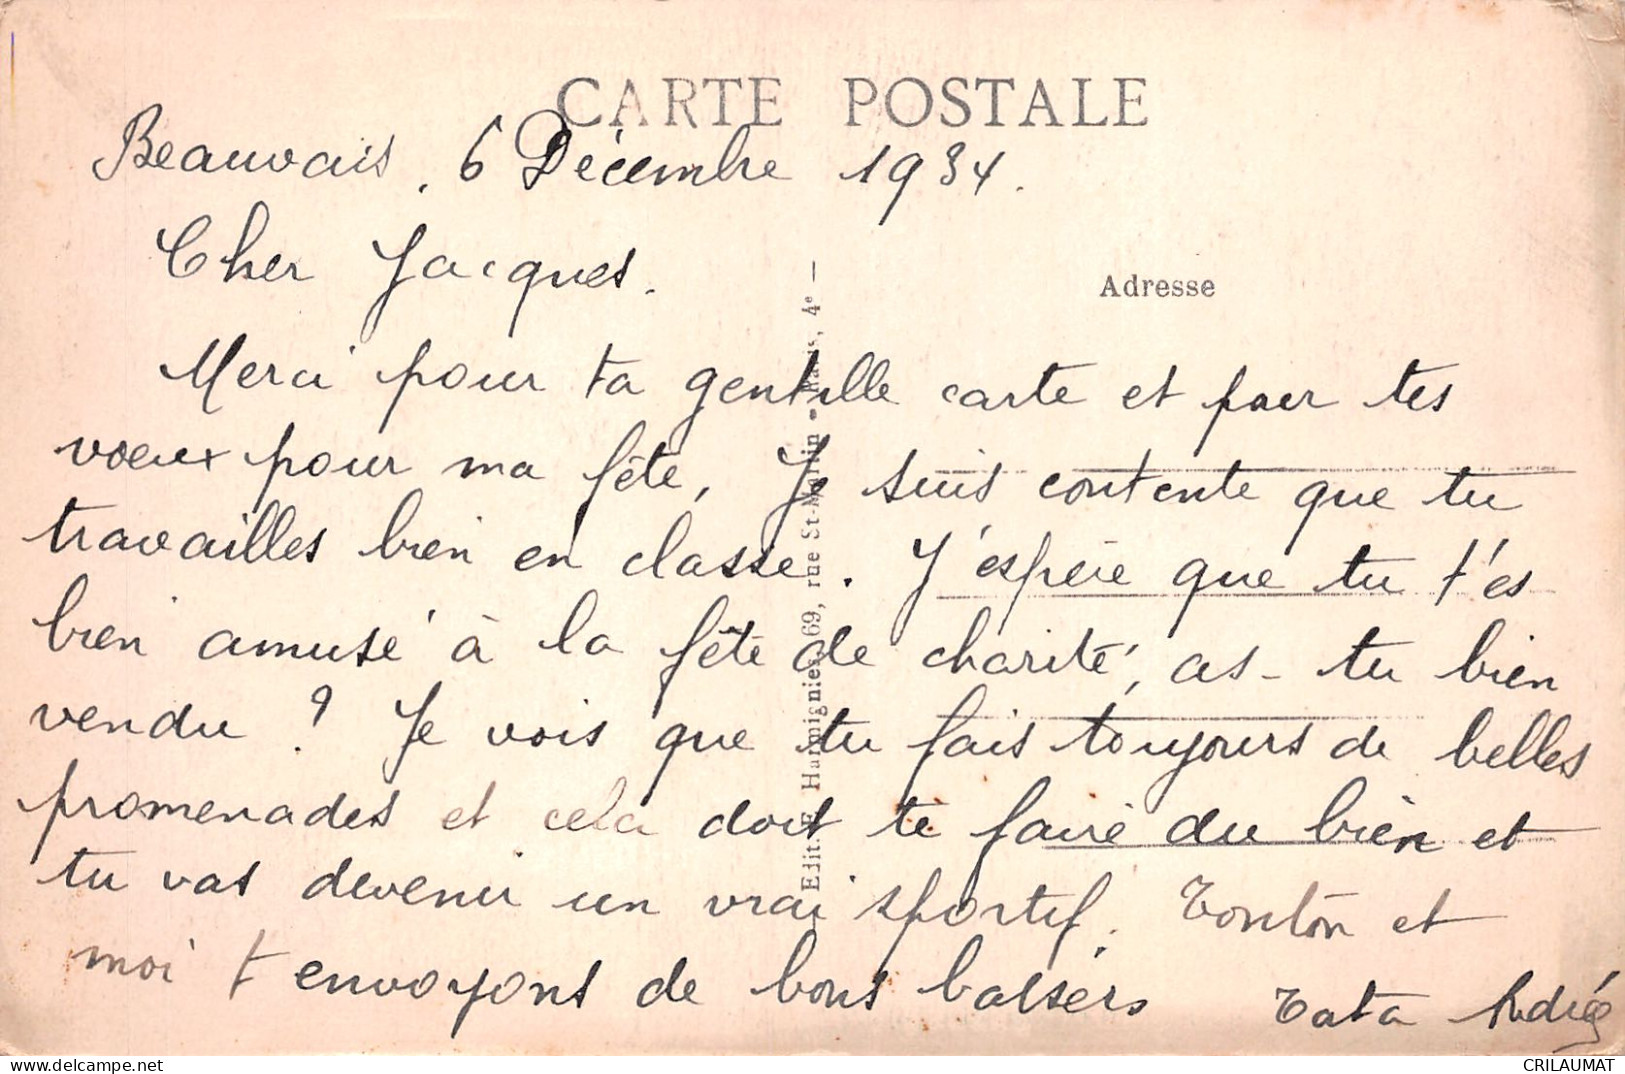 CARTE POSTALE
Beauvais, 6 Décembre 1934.
Cher Jacques.
Adresse
Merci pour ta gentille carte et pour tes
voeux pour ma fête, Je suis contente que tu
travailles bien en classe. J'espère que tu t'es
bien amusé à la fête de charité, as-tu bien
vendu ? Je vois que tu fais toujours de belles
promenades et cela doit te faire du bien et
tu vas devenir un vrai sportif. Tonton et
moi t'envoyons de bons baisers
Tata
Edit. F. Harmignies, 69, rue St-Martin • Paris, 4e —
delcampe.net
CRILAUMAT